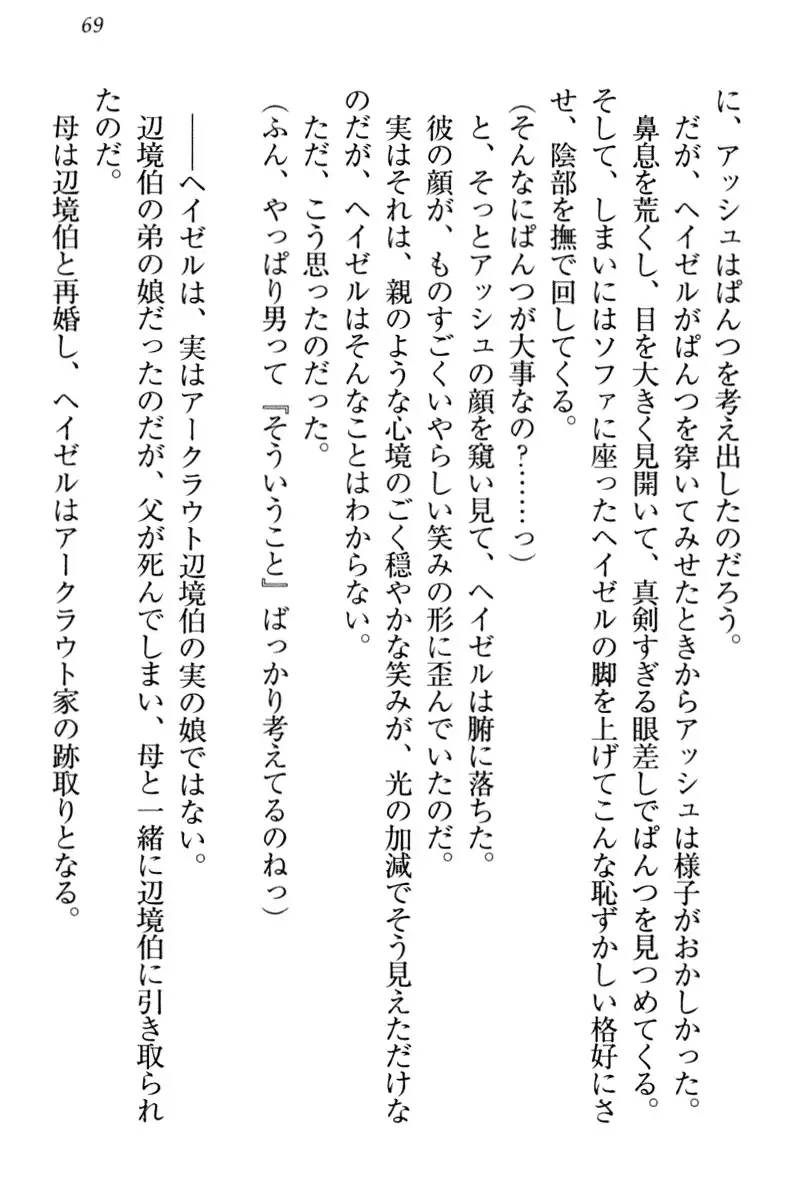 69
に、アッシュはぱんつを考え出したのだろう。
だが、ヘイゼルがぱんつを穿いてみせたときからアッシュは様子がおかしかった。
鼻息を荒くし、目を大きく見開いて、真剣すぎる眼差しでぱんつを見つめてくる。
そして、しまいにはソファに座ったヘイゼルの脚を上げてこんな恥ずかしい格好にさ
せ、陰部を撫で回してくる。
(そんなにぱんつが大事なの?……っ)
と、そっとアッシュの顔を窺い見て、ヘイゼルは腑に落ちた。
彼の顔が、ものすごくいやらしい笑みの形に歪んでいたのだ。
実はそれは、親のような心境のごく穏やかな笑みが、光の加減でそう見えただけな
のだが、ヘイゼルはそんなことはわからない。
ただ、こう思ったのだった。
(ふん、やっぱり男って『そういうこと』ばっかり考えてるのねっ)
――ヘイゼルは、実はアークラウト辺境伯の実の娘ではない。
辺境伯の弟の娘だったのだが、父が死んでしまい、母と一緒に辺境伯に引き取られ
たのだ。
母は辺境伯と再婚し、ヘイゼルはアークラウト家の跡取りとなる。